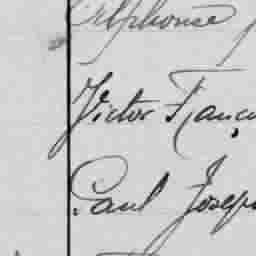 Alphonse
Victor Franç
Paul Joseph